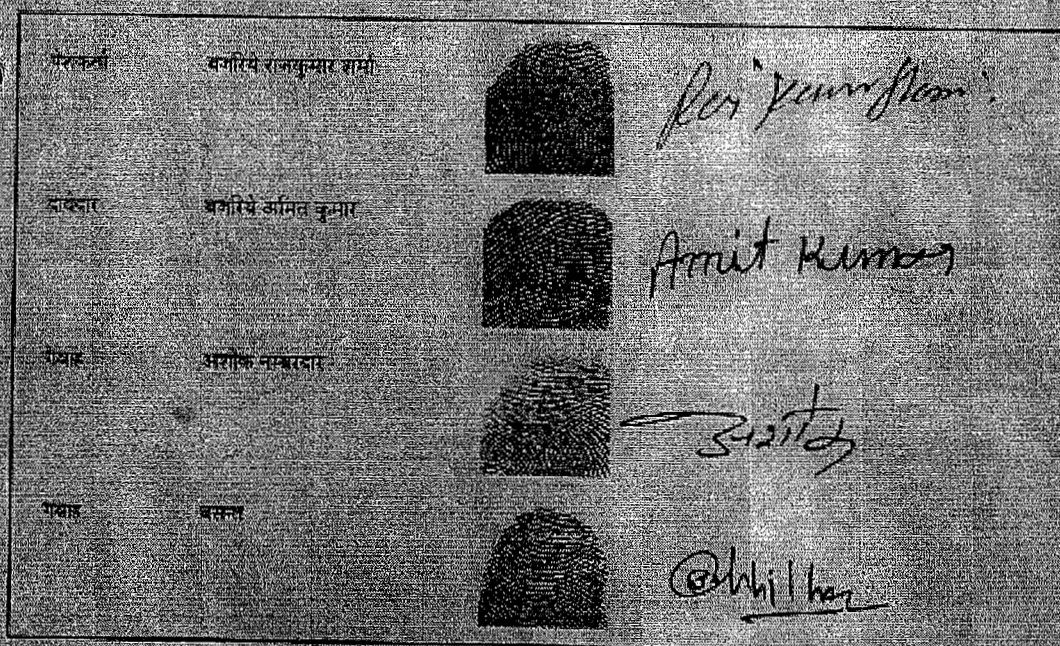 पेशकर्ता बजरिये राजकुमार शर्मा
दावेदार बजरिये अमित कुमार Amit Kumar
गवाह अशोक नम्बरदार अशोक
गवाह